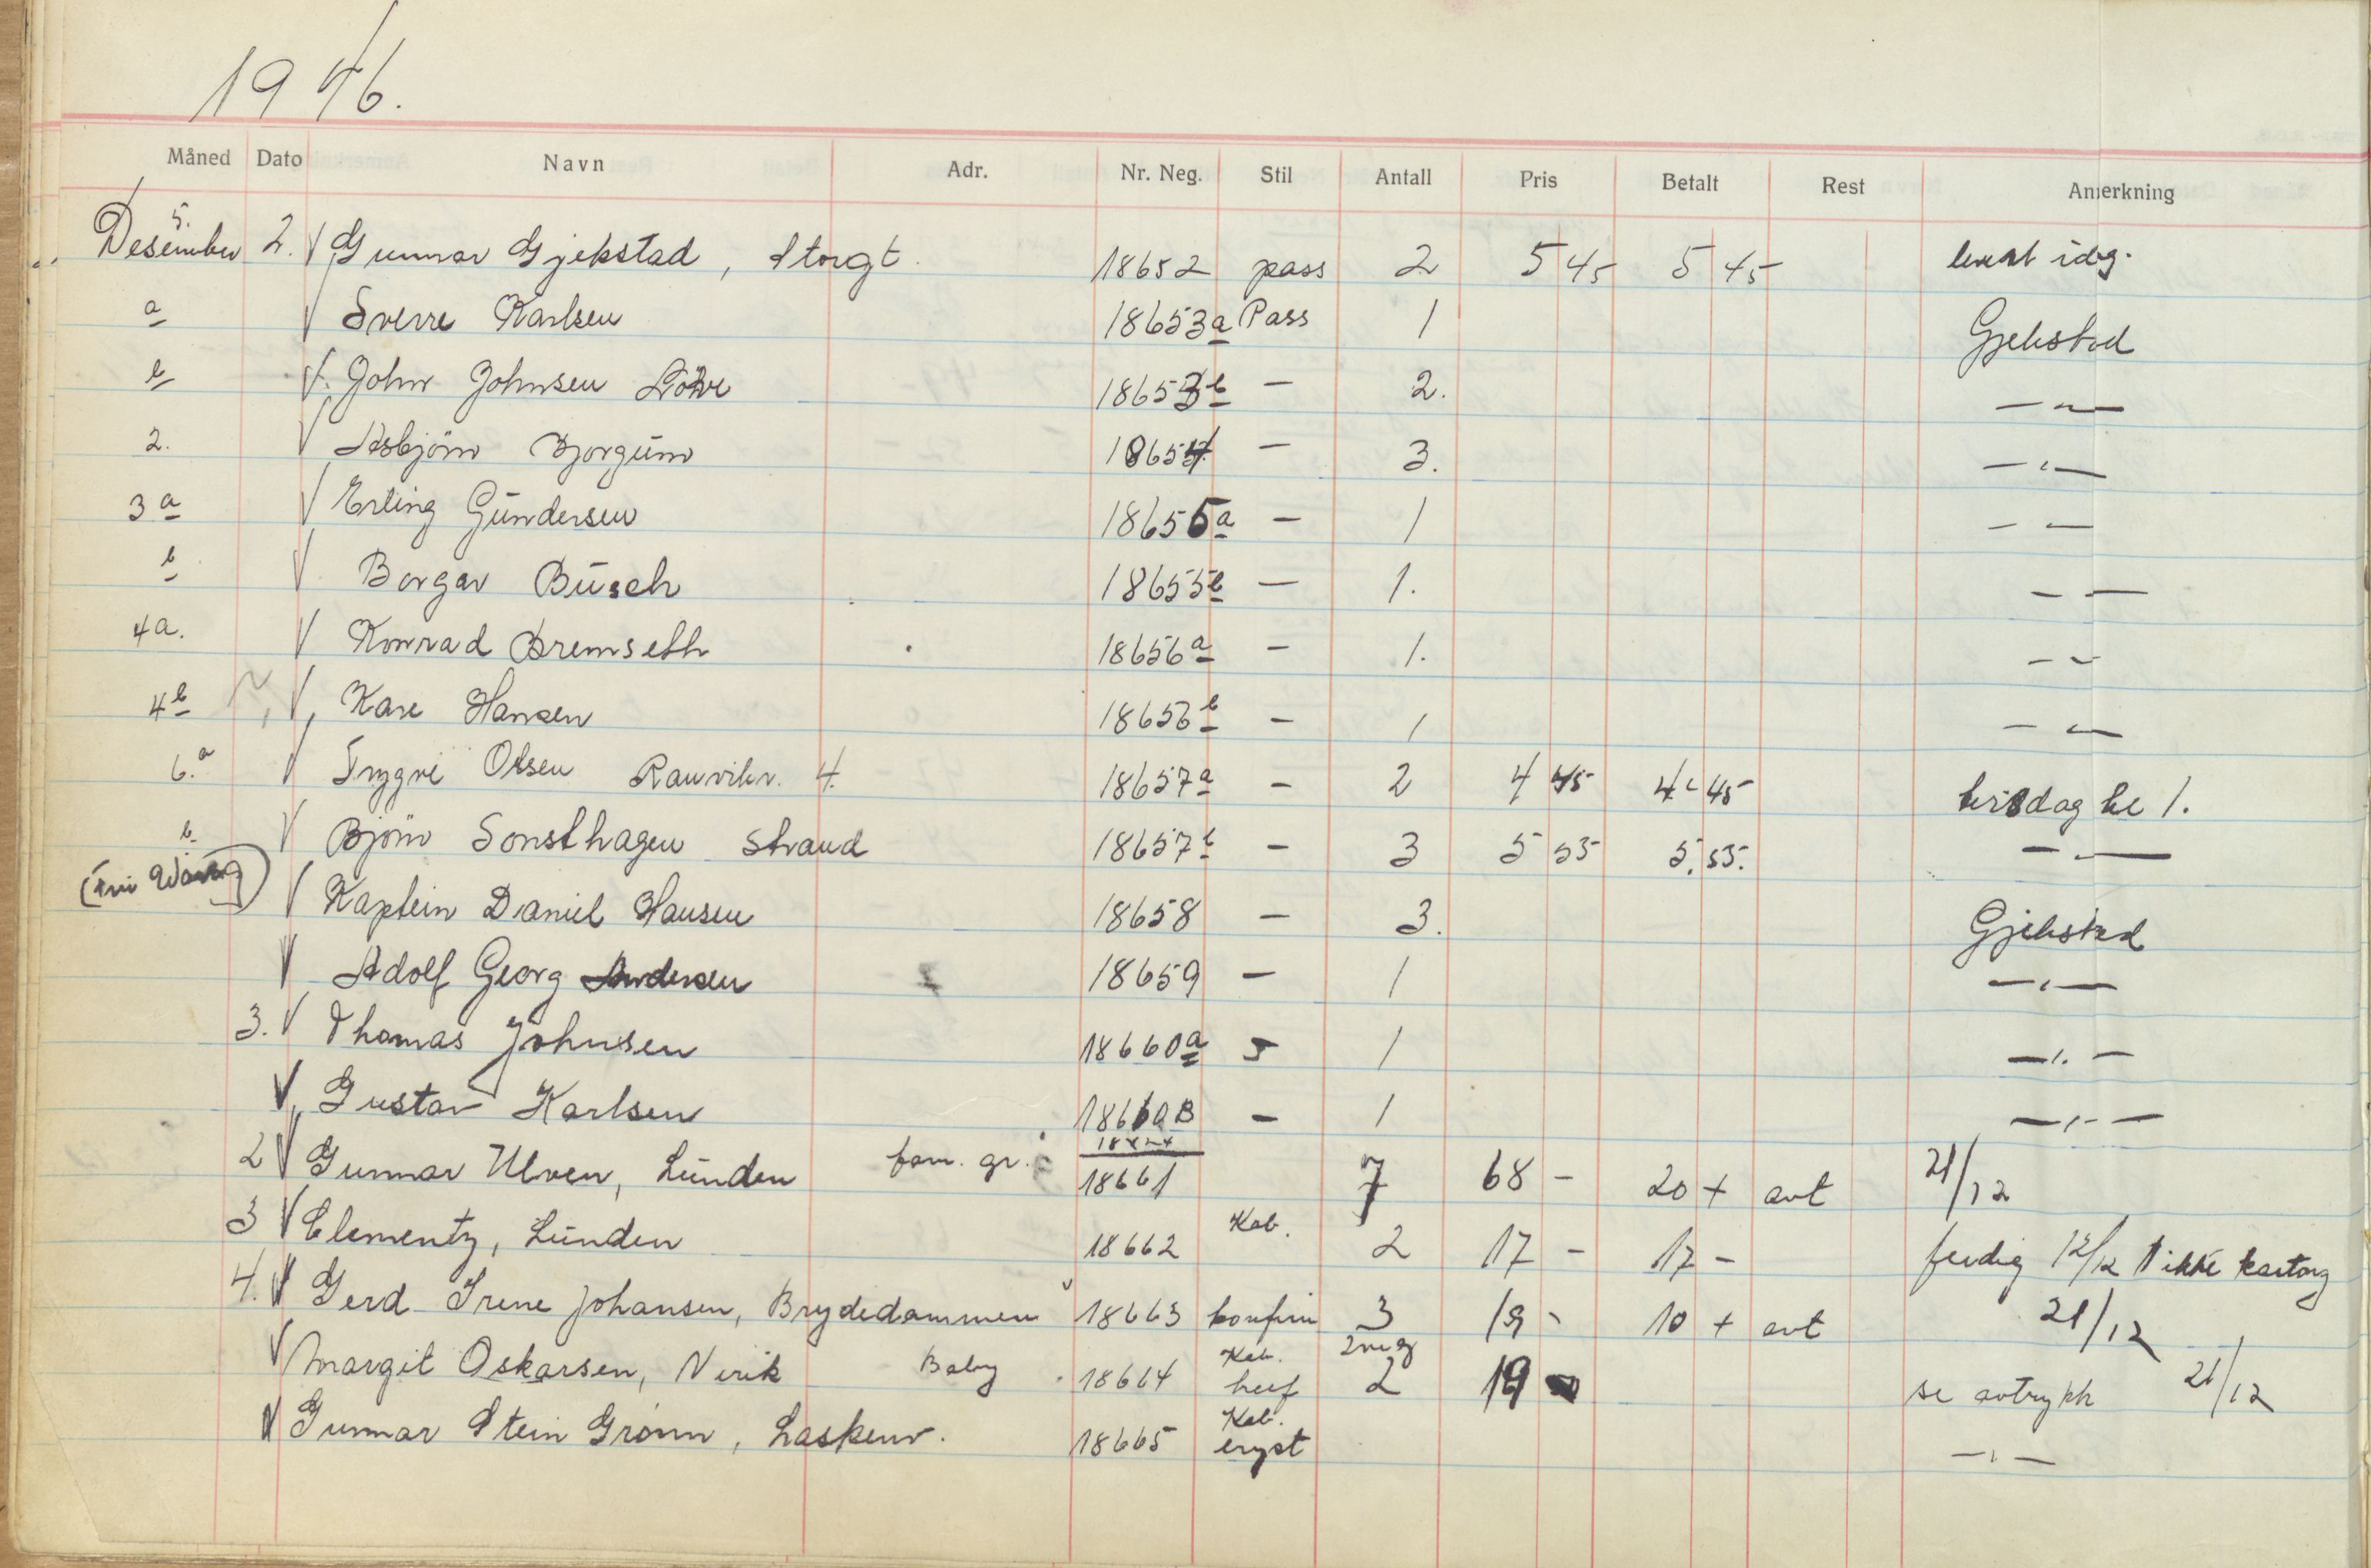 1946.
Måned Dato Navn Adr. Nr. Neg. Stil Antall Pris Betalt Rest Anmerkning
5.
Desember 2. V Gunnar Gjekstad, Storgt. 18652 pass 2 5 45 5 45 levert idag.
a V Sverre Karlsen 18653a Pass 1 Gjekstad
b V. John Johnsen 18653b — 2. — " —
2. V Asbjörn Bjorgum 18654 — 3. — " —
3 a V Erling Gundersen 18655a — 1 — —
b V Borgar Busch 18655b — 1. — —
4a. V Konrad Bremseth 18656a — 1. — —
4b V Kare Hansen 18656b — 1 — —
6.a V Trygve Olsen Ranvikv. 4. 18657a — 2 4 45 4 45 tirsdag kl 1.
b V Björn Sonsthagen Strand 18657b — 3 5 55 5. 55. — " —
V Kaptein Daniel Hansen 18658 — 3. Gjekstad
V Adolf Georg Andersen 18659 — 1 — " —
3. V Thomas Johnsen 18660a — 1 — " —
V Gustav Karlsen 18660B — 1 — " —
2 V Gunnar Ulven, Lunden fam. gr. 18661 7 68 — 20 + avt 21/12
3 V Clementz, Lunden 18662 Kab. 2 17 — 17 — ferdig 12/12 ikke kartong
4. V Gerd Irene Johansen, Brydedammen 18663 konfirm 3 19 - 10 + avt 21/12
V Margit Oskarsen, Virik Baby 18664 Kab. helf 2 neg 2 19 se avtrykk 21/12
V Gunnar Stein Grönn, Laskenv. 18665 Kab. bryst — " —